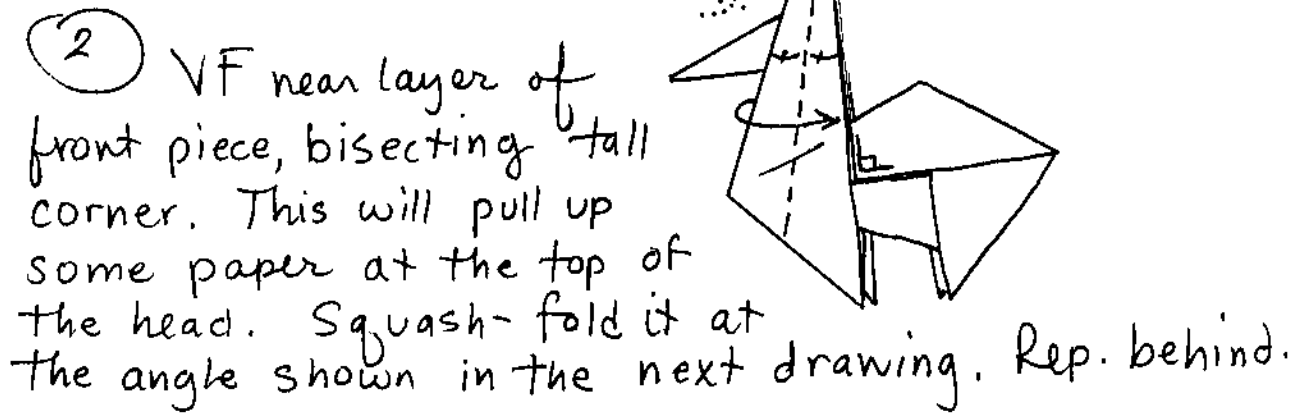 2 VF near layer of
front piece, bisecting tall
corner. This will pull up
some paper at the top of
the head. Squash-fold it at
the angle shown in the next drawing. Rep. behind.